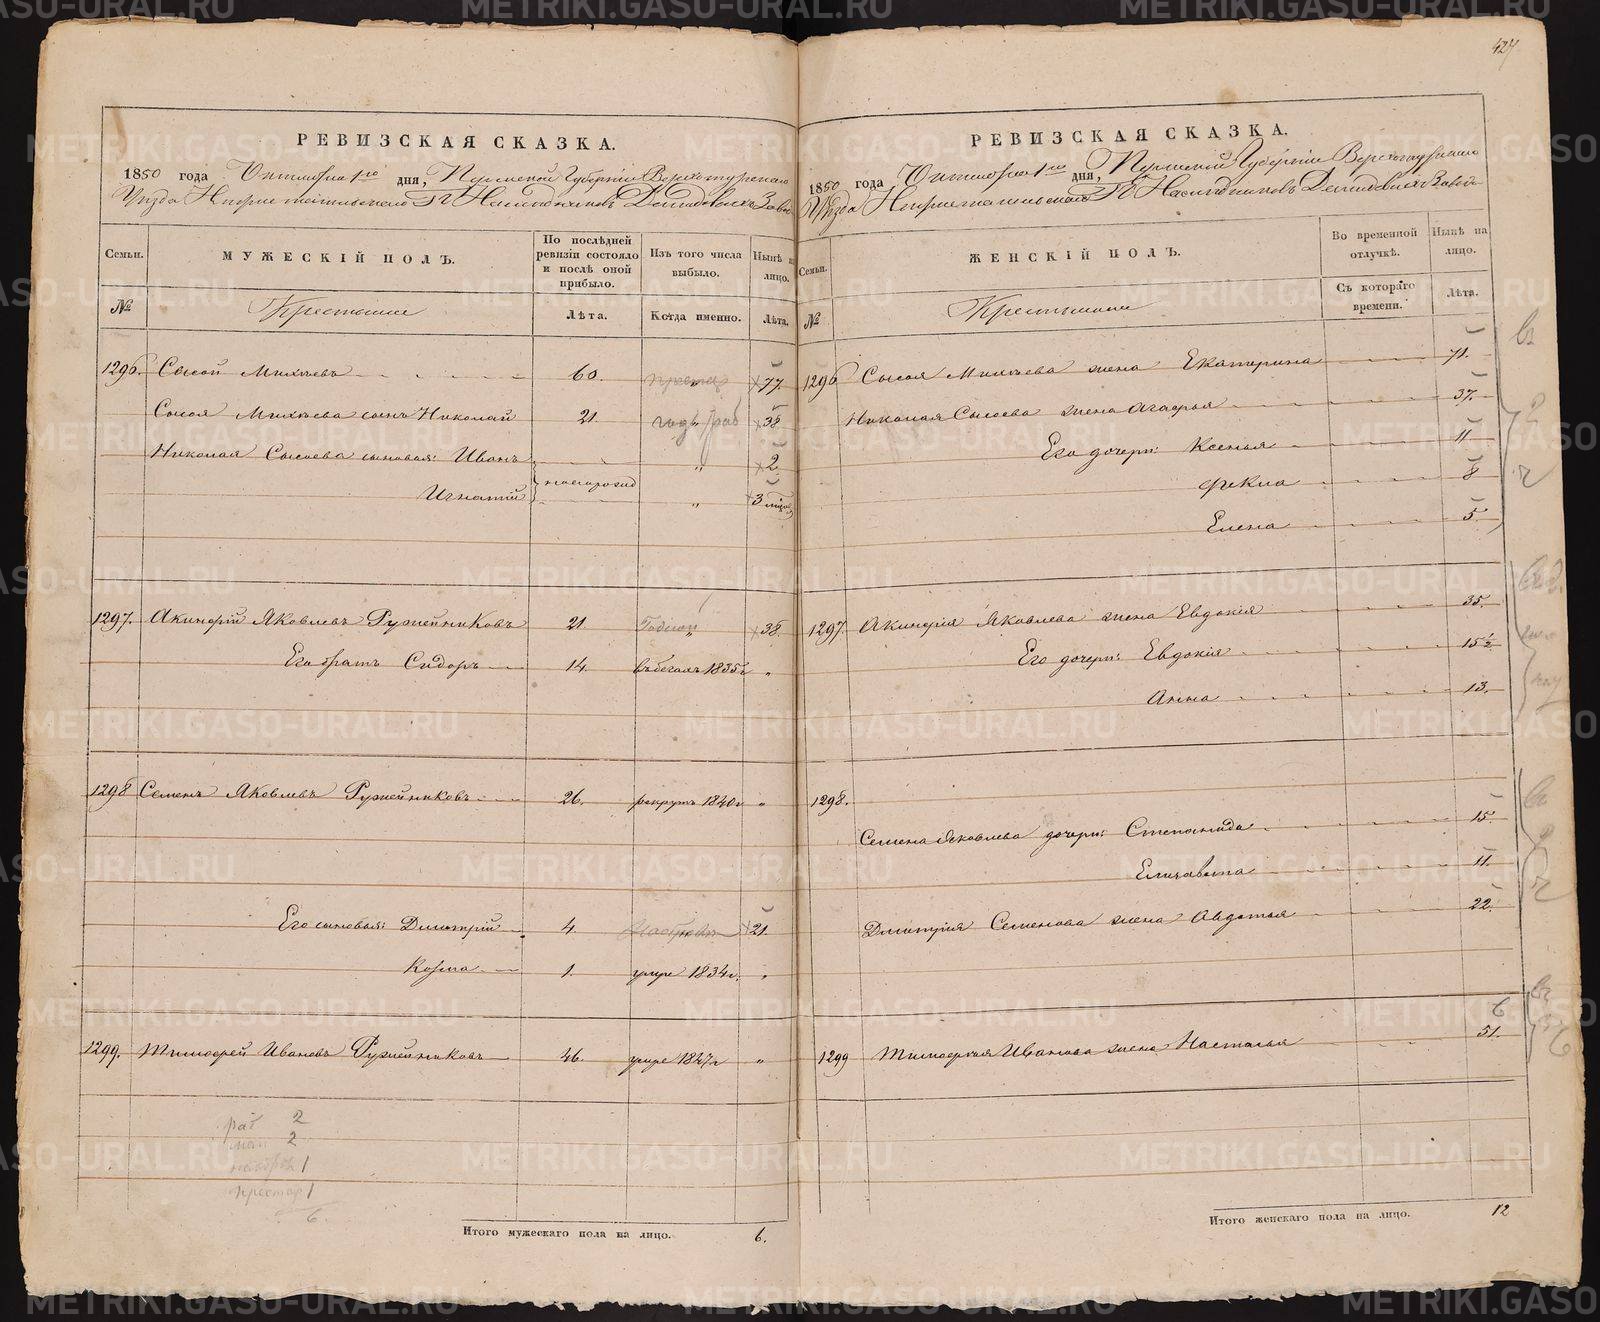 427
РЕВИЗСКАЯ СКАЗКА.
1850 года Октября 1го дня, Пермской Губерніи Верхотурскаго
Уѣзда Г Наслѣдниковъ Демидовыхъ
Семьи.
МУЖЕСКІЙ ПОЛЪ.
По послѣдней ревизіи состояло и послѣ оной прибыло.
Изъ того числа выбыло.
Нынѣ на лицо.
№
Крестьяне
Лѣта.
Когда именно.
Лѣта.
1296. Сысой Михѣевъ 60. " 77.
Сысоя Михѣева сынъ Николай 21. годъ " раб 38
Николая Сысоева сыновья: Иванъ " 2
Игнатій } новорожд " 3 мѣс
1297. Акинфій Яковлевъ Ружейниковъ 21. " 38.
Его братъ Сидоръ 14. въ бегахъ 1835г "
1298 Семенъ Яковлевъ Ружейниковъ 26. рекрутъ 1840г "
Его сыновья: Дмитрій 4. 21.
Козма 1. умре 1834г. "
1299. Тимофей Ивановъ Ружейниковъ 46. умре 1847г "
раб 2
2
1
престар 1
6.
Итого мужескаго пола на лицо. 6.
РЕВИЗСКАЯ СКАЗКА.
1850 года Октября 1го дня, Пермской Губерніи Верхотурскаго
Уѣзда Г Наслѣдниковъ Демидовыхъ Завод
Семьи.
ЖЕНСКІЙ ПОЛЪ.
Во временной отлучкѣ.
Нынѣ на лицо.
№
Крестьянки
Съ котораго времени.
Лѣта.
1296 Сысоя Михѣева жена Екатерина 71.
Николая Сысоева жена Агафья 37.
Его дочери: Ксенья 11.
Фекла 8
Елена 5.
1297. Акинфія Яковлева жена Евдокія 35.
Его дочери: Евдокія 15 ½
Анна 13.
1298.
Семена Яковлева дочери: Степанида 15.
Елизавета 11.
Дмитрія Семенова жена Авдотья 22.
1299 Тимофея Иванова жена Настасья 51.
Итого женскаго пола на лицо. 12
METRIKI.GASO-URAL.RU